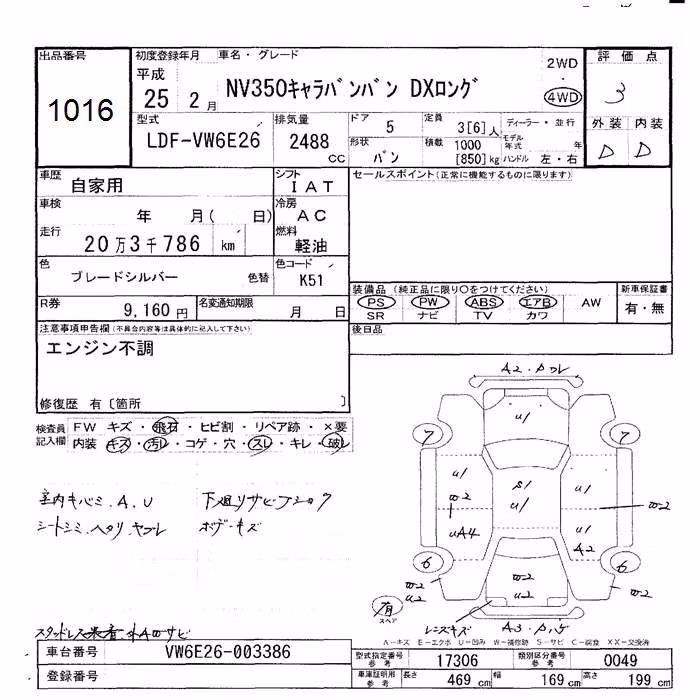 出品番号
1016
初度登録年月
平成
25 2月
車名・グレード
NV350キャラバンバン DXロング
2WD
・
4WD
評価点
3
外装 内装
D D
型式
LDF-VW6E26
排気量
2488
CC
ドア
5
形状
バン
定員
3[6]人
積載 1000
[850]kg
ディーラー・並行
モデル年式 年
ハンドル 左・右
車歴
自家用
シフト
IAT
車検
年 月( 日)
冷房
AC
走行
20万3千786 km
燃料
軽油
色
ブレードシルバー
色替
色コード
K51
R券
9,160円
名変通知期限
月 日
セールスポイント(正常に機能するものに限ります)
装備品(純正品に限り○をつけてください)
PS PW ABS エアB AW
SR ナビ TV カワ
新車保証書
有・無
後日品
注意事項申告欄(不具合内容等は具体的に記入して下さい)
エンジン不調
修復歴 有〔箇所 〕
検査員記入欄
FW キズ・飛石・ヒビ割・リペア跡・×要
内装 キズ・汚レ・コゲ・穴・スレ・キレ・破レ
室内キバミ.A.U
シートシミ.ヘタリ.ヤブレ
下廻リサビ
ボデーキズ
A2・
U1
7
7
U1
W-2
UA4
S1
U1
U1
W-2
U1
A2
6
6
W-2
U2
W-2
U2
W-2
有
スペア
レンズキズ
A3・
スタッドレス
A-キズ E-エクボ U-凹み W-補修跡 S-サビ C-腐食 XX-交換済
車台番号
VW6E26-003386
登録番号
型式指定番号
参考
17306
類別区分番号
参考
0049
車庫証明用
参考
長さ
469 cm
幅
169 cm
高さ
199 cm